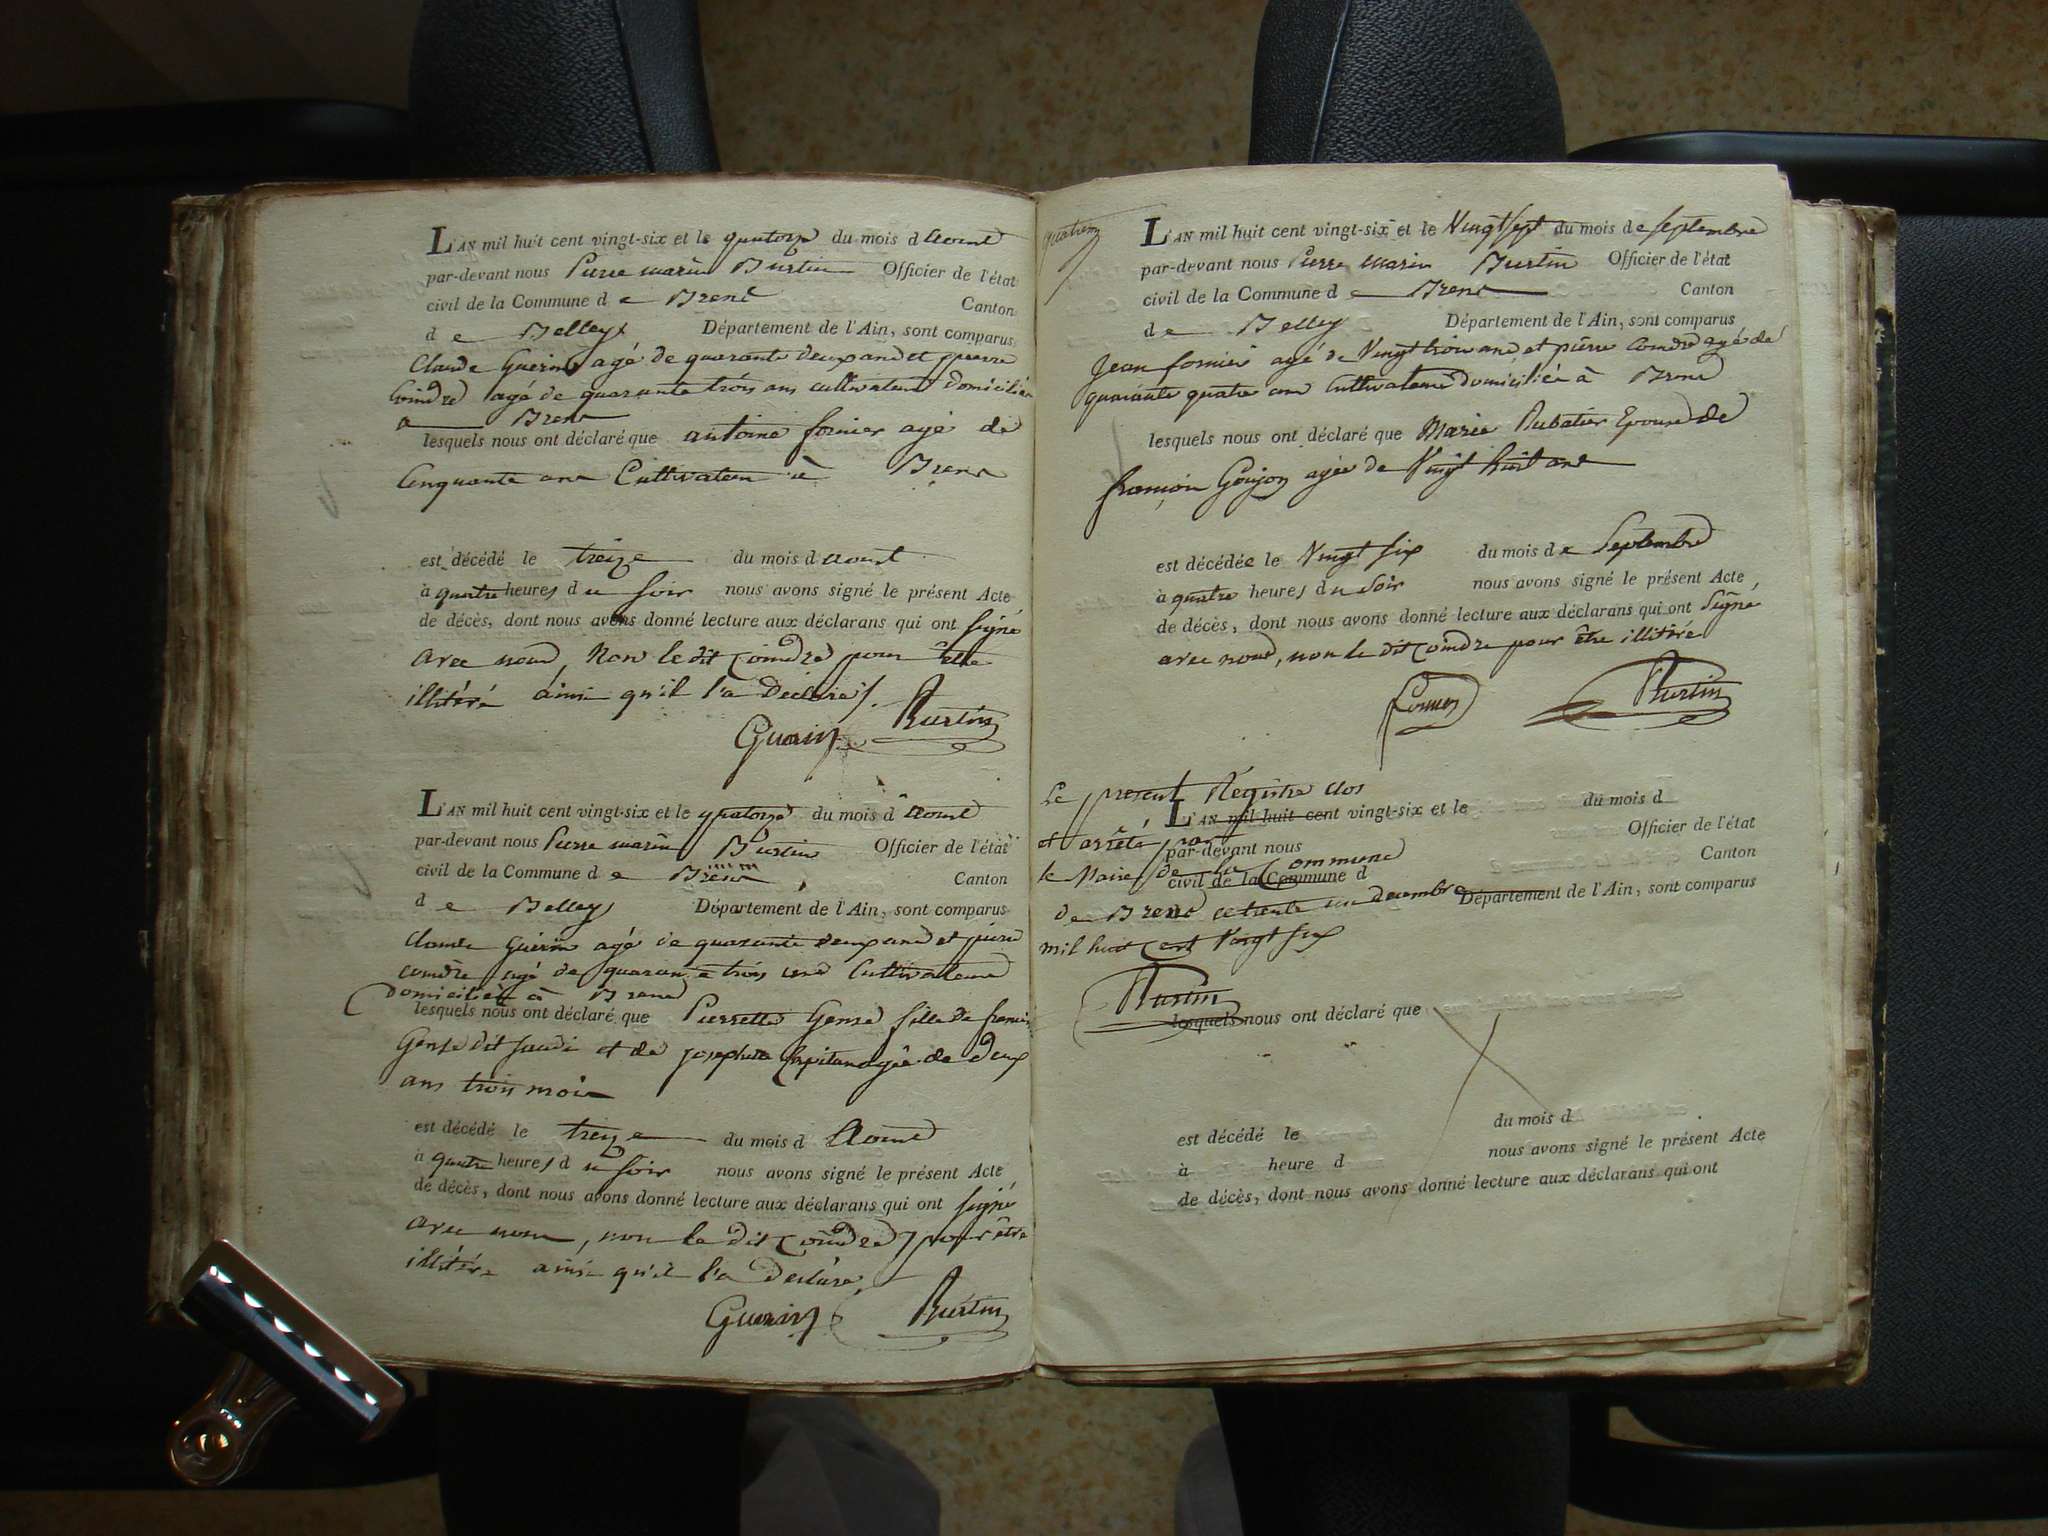 L'AN mil huit cent vingt-six et le quatorze du mois d aoust
par-devant nous Pierre marin Burtin Officier de l'état
civil de la Commune d e Brens Canton
d e Belley Département de l'Ain, sont comparus
Claude Guerin agé de quarante deux ans et pierre
Coindre agé de quarante trois ans cultivateurs domiciliés
a Brens
lesquels nous ont déclaré que antoine fornier agé de
Cinquante ans Cultivateur à Brens
est décédé le treize du mois d aoust
à quatre heures d u soir nous avons signé le présent Acte
de décès, dont nous avons donné lecture aux déclarans qui ont signé
avec nous, Non le dit Coindre pour être
illitéré ainsi qu'il l'a Déclaré
Guerin Burtin
L'AN mil huit cent vingt-six et le quatorze du mois d aoust
par-devant nous Pierre marin Burtin Officier de l'état
civil de la Commune d e Brens Canton
d e Belley Département de l'Ain, sont comparus
Claude Guerin agé de quarante deux ans et pierre
coindre agé de quarante trois ans Cultivateurs
domiciliés à Brens
lesquels nous ont déclaré que Pierrette fille de
dit et de agée de deux
ans trois mois
est décédé le treize du mois d Aoust
à quatre heures d u soir nous avons signé le présent Acte
de décès, dont nous avons donné lecture aux déclarans qui ont signé
avec nous, non le dit Coindre pour être
illitéré ainsi qu'il l'a declaré
Guerin Burtin
L'AN mil huit cent vingt-six et le Vingt sept du mois d e septembre
par-devant nous Pierre marin Burtin Officier de l'état
civil de la Commune d e Brens Canton
d e Belley Département de l'Ain, sont comparus
Jean fornier agé de Vingt trois ans et pierre coindre agé de
quarante quatre ans Cultivateurs domiciliés à Brens
lesquels nous ont déclaré que Marie Rubatier Epouse de
françois Goujon agée de Vingt huit ans
est décédée le Vingt six du mois d e Septembre
à quatre heures d u soir nous avons signé le présent Acte,
de décès, dont nous avons donné lecture aux déclarans qui ont Signé
avec nous, non le dit Coindre pour être illitéré
Burtin
Le present Régistre clos
L'AN mil huit cent vingt-six et le du mois d
et arrêté par
par-devant nous Officier de l'état
le Maire de la Commune
civil de la Commune d Canton
de Brens ce trente un decembre
Département de l'Ain, sont comparus
mil huit cent Vingt six
Burtin
lesquels nous ont déclaré que
est décédé le du mois d
à heure d nous avons signé le présent Acte
de décès, dont nous avons donné lecture aux déclarans qui ont